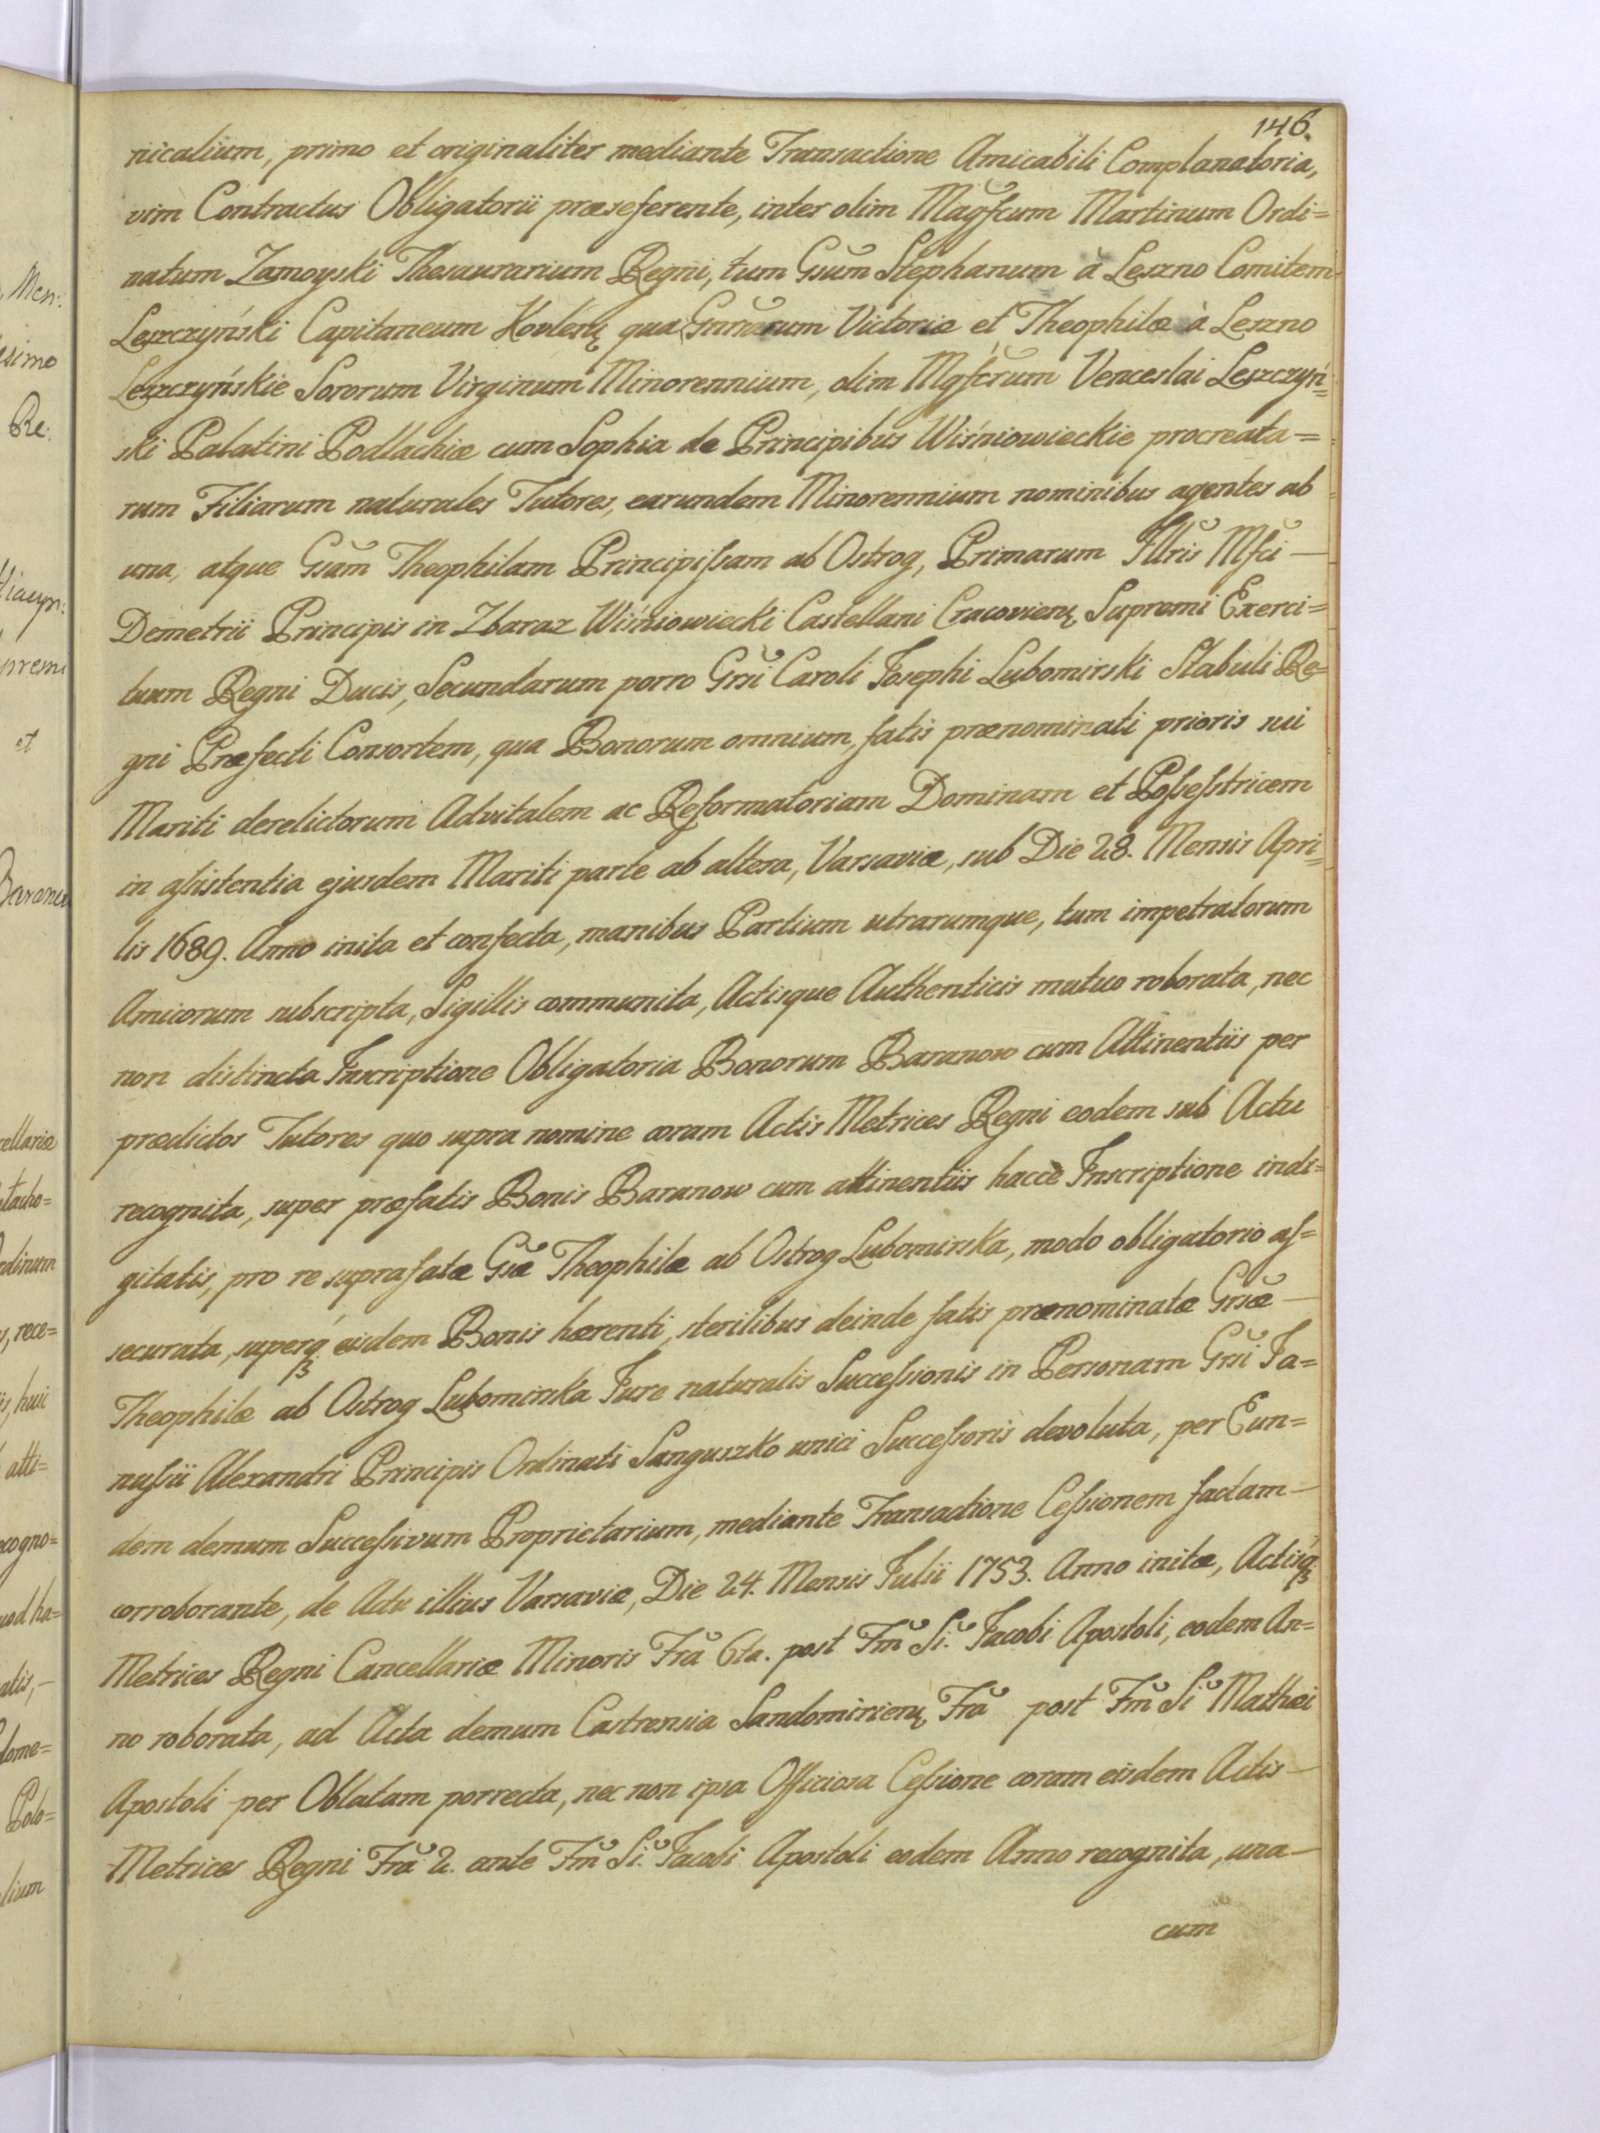 146.
nicalium, primo et originaliter mediante Transactione Amicabili Complanatoria,
vim Contractus Obligatorii præseferente, inter olim Magfcum Martinum Ordi=
natum Zamoyski Thesaurarium Regni, tum Gsum Stephanum à Leszno Comitem
Leszczyński Capitaneum Kovleñ qua Gnrarum Victoriæ et Theophilæ à Leszno
Leszczyńskie Sororum Virginum Minorennium, olim Mgfcrum Venceslai Leszczyń=
ski Palatini Podlachiæ cum Sophia de Principibus Wiśniowieckie procreata=
rum Filiarum naturales Tutores, earundem Minorennium nominibus agentes ab
una, atque Gsam Theophilam Principißam ab Ostrog, Primarum Illris Mfci —
Demetrii Principis in Zbaraz Wiśniowiecki Castellani Cracovienę Supremi Exerci=
tuum Regni Ducis, Secundarum porro Grsi Caroli Josephi Lubomirski Stabuli Re=
gni Præfecti Consortem, qua Bonorum omnium, fatis prænominati prioris sui
Mariti derelictorum Advitalem ac Reformatoriam Dominam et Poßeßtricem
in aßistentia ejusdem Mariti parte ab altera, Varsaviæ, sub Die 28. Mensis Apri=
lis 1689. Anno inita et confecta, manibus Partium utrarumque, tum impetratorum
Amicorum subscripta, Sigillis communita, Actisque Authenticis mutuo roborata, nec
non distincta Inscriptione Obligatoria Bonorum Baranow cum Attinentiis per
prædictos Tutores quo supra nomine coram Actis Metrices Regni eodem sub Actu
recognita, super præfatis Bonis Baranow cum attinentiis haccè Inscriptione indi=
gitatis, pro re suprafatæ Gsæ Theophilæ ab Ostrog Lubomirska, modo obligatorio aß=
securata, superq́ eisdem Bonis hærenti, sterilibus deinde fatis prænominatæ Grsæ —
Theophilæ ab Ostrog Lubomirska Jure naturalis Succeßionis in Personam Grsi Ja=
nußii Alexandri Principis Ordinati Sanguszko unici Succeßoris devoluta, per Eun=
dem demum Succeßivum Proprietarium, mediante Transactione Ceßionem factam —
corroborante, de Actu illius Varsaviæ, Die 24. Mensis Julii 1753. Anno initæ, Actisq́
Metrices Regni Cancellariæ Minoris Fra 6ta. post Fm Si. Jacobi Apostoli, eodem An=
no roborata, ad Acta demum Castrensia Sandomirienę Fra post Fm Si Mathæi
Apostoli per Oblatam porrecta, nec non ipsa Officiosa Ceßione coram eisdem Actis —
Metrices Regni Fra 2. ante Fm Si. Jacobi Apostoli eodem Anno recognita, una —
cum